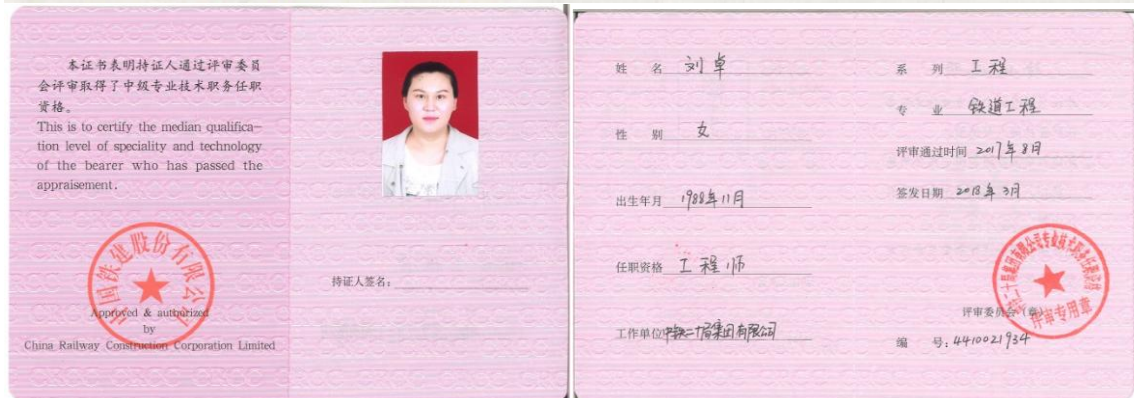 本证书表明持证人通过评审委员
会评审取得了中级专业技术职务任职
资格。
This is to certify the median qualifica-
tion level of speciality and technology
of the bearer who has passed the
appraisement.
中国铁建股份有限公司
Approved & authorized
by
China Railway Construction Corporation Limited
持证人签名：
姓 名 刘卓
性 别 女
出生年月 1988年11月
任职资格 工程师
工作单位 中铁二十局集团有限公司
系 列 工程
专 业 铁道工程
评审通过时间 2017年8月
签发日期 2018年3月
评审委员会（章）
评审专用章
编 号：4410021934